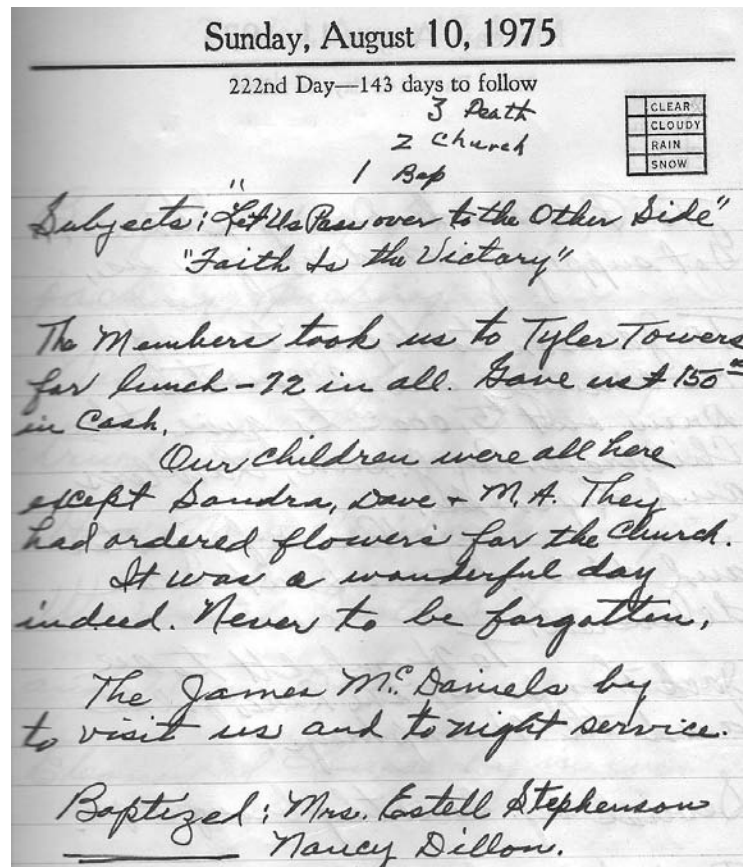 Sunday, August 10, 1975
222nd Day—143 days to follow
3 Death
2 Church
1 Bap
CLEAR
CLOUDY
RAIN
SNOW
Subjects: "Let Us Pass over to the Other Side"
"Faith Is the Victory"
The Members took us to Tyler Towers
for lunch – 72 in all. Gave us $150
in Cash.
Our children were all here
except Sandra, Dave + M.A. They
had ordered flowers for the Church.
It was a wonderful day
indeed. Never to be forgotten.
The James McDaniels by
to visit us and to night service.
Baptized: Mrs. Estell Stephenson
Nancy Dillon.